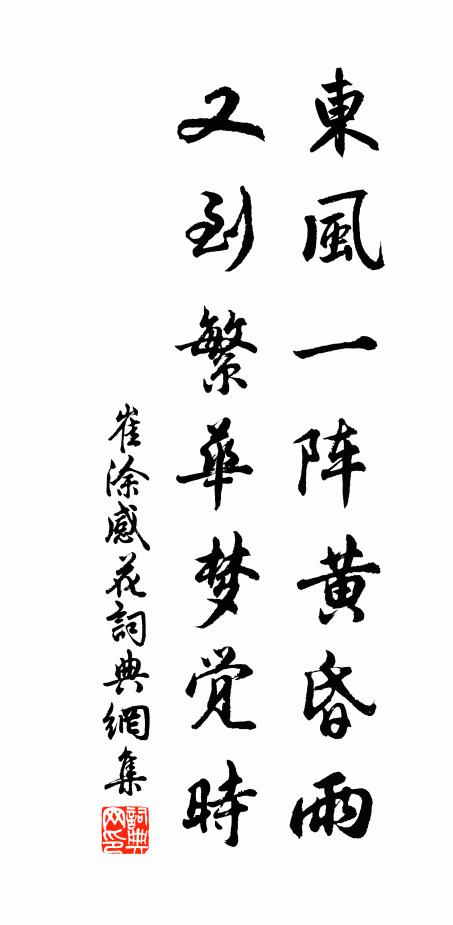 東風一阵黄昏雨
又到繁華梦觉時
崔涂感花詞典網集
詞典
网印